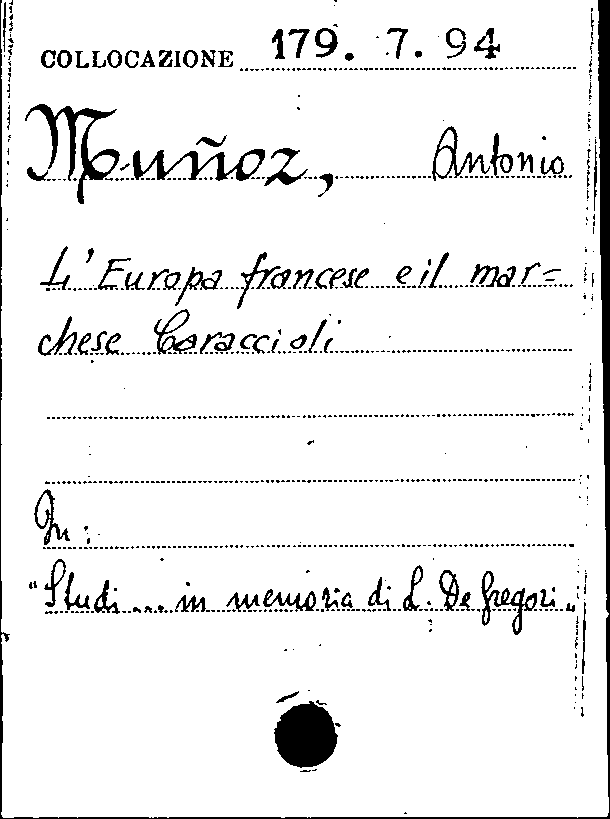 COLLOCAZIONE 179. 7. 94
Muñoz, Antonio
L'Europa francese e il mar=
chese Caraccioli
In:
"Studi ... in memoria di L. De Gregori„